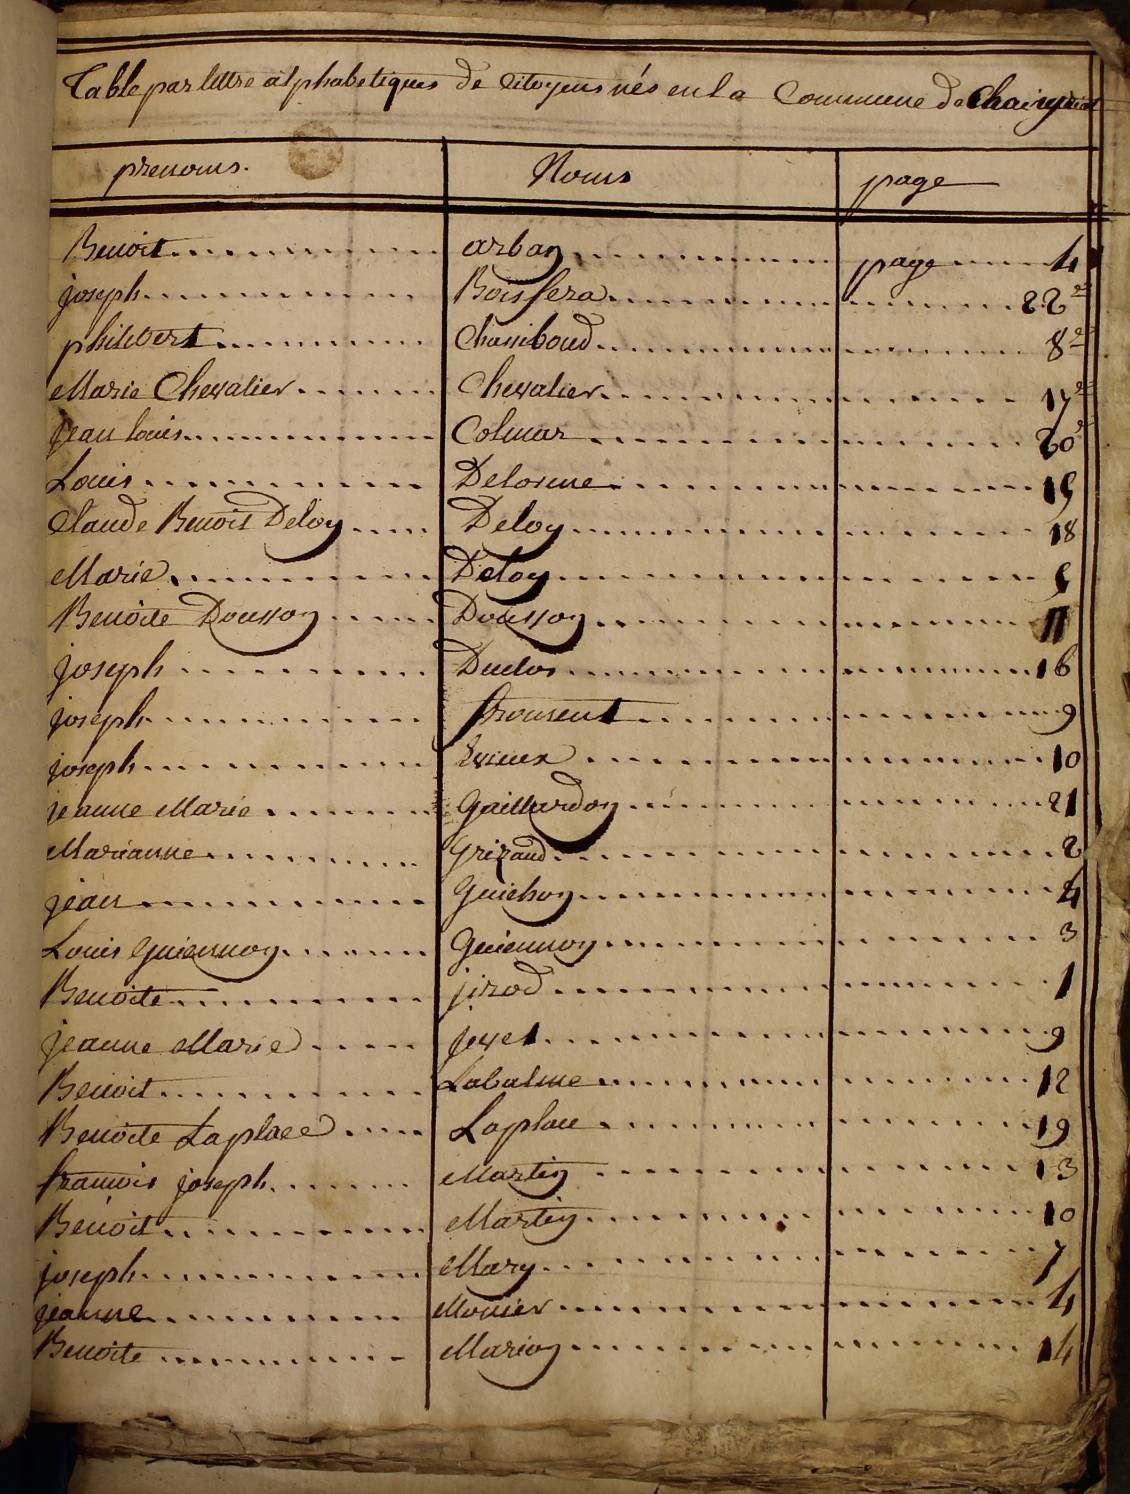 Table par lettre alphabetiques de Citoyens nés en la Commune de
prenoms. Noms page
Benoit arban page 4
joseph Boissera 22
philibert 8
Marie Chevalier Chevalier 17
jean louis Colmar 20
Louis Delorme 15
Claude Benoit Deloy Deloy 18
Marie Deloy 5
Benoite Dousson Dousson 11
joseph Duclos 16
joseph froment 9
joseph 10
jeanne Marie Gaillardon 21
Marianne Grizaud 2
jean Guichon 4
Louis Guiennon Guiennon 3
Benoite jirod 1
jeanne Marie 9
Benoit Labalme 12
Benoite Laplace Laplace 19
francois joseph Martin 13
Benoit Martin 10
joseph Mary 7
jeanne Monier 4
Benoite Marion 14